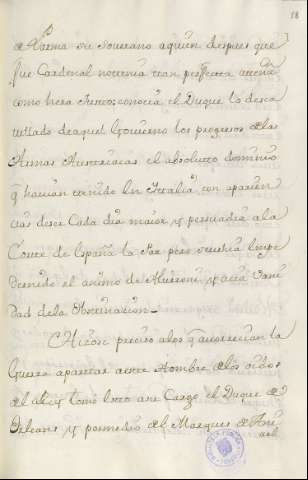 18
de Parma su soverano aquien despues que
fue Cardenal no tenia tan perfecta atenz.
como hera Justo: conocia el Duque lo desca
vellado de aquel Govierno los progresos de las
Armas Austeriacas el absoluto dominio
q havian tenido En Italia con aparien
cias de ser Cada dia maior y persuadia a la
Corte de España la Paz pero estava
el animo de Alveroni y acia vani
dad dela Obstinacion
Hizose preciso alos q aborrecian la
Guerra apartar a este Hombre delos oidos
del Rey tomó luego a su Cargo el Duque de
Orleans y por medio del Marques de Ani